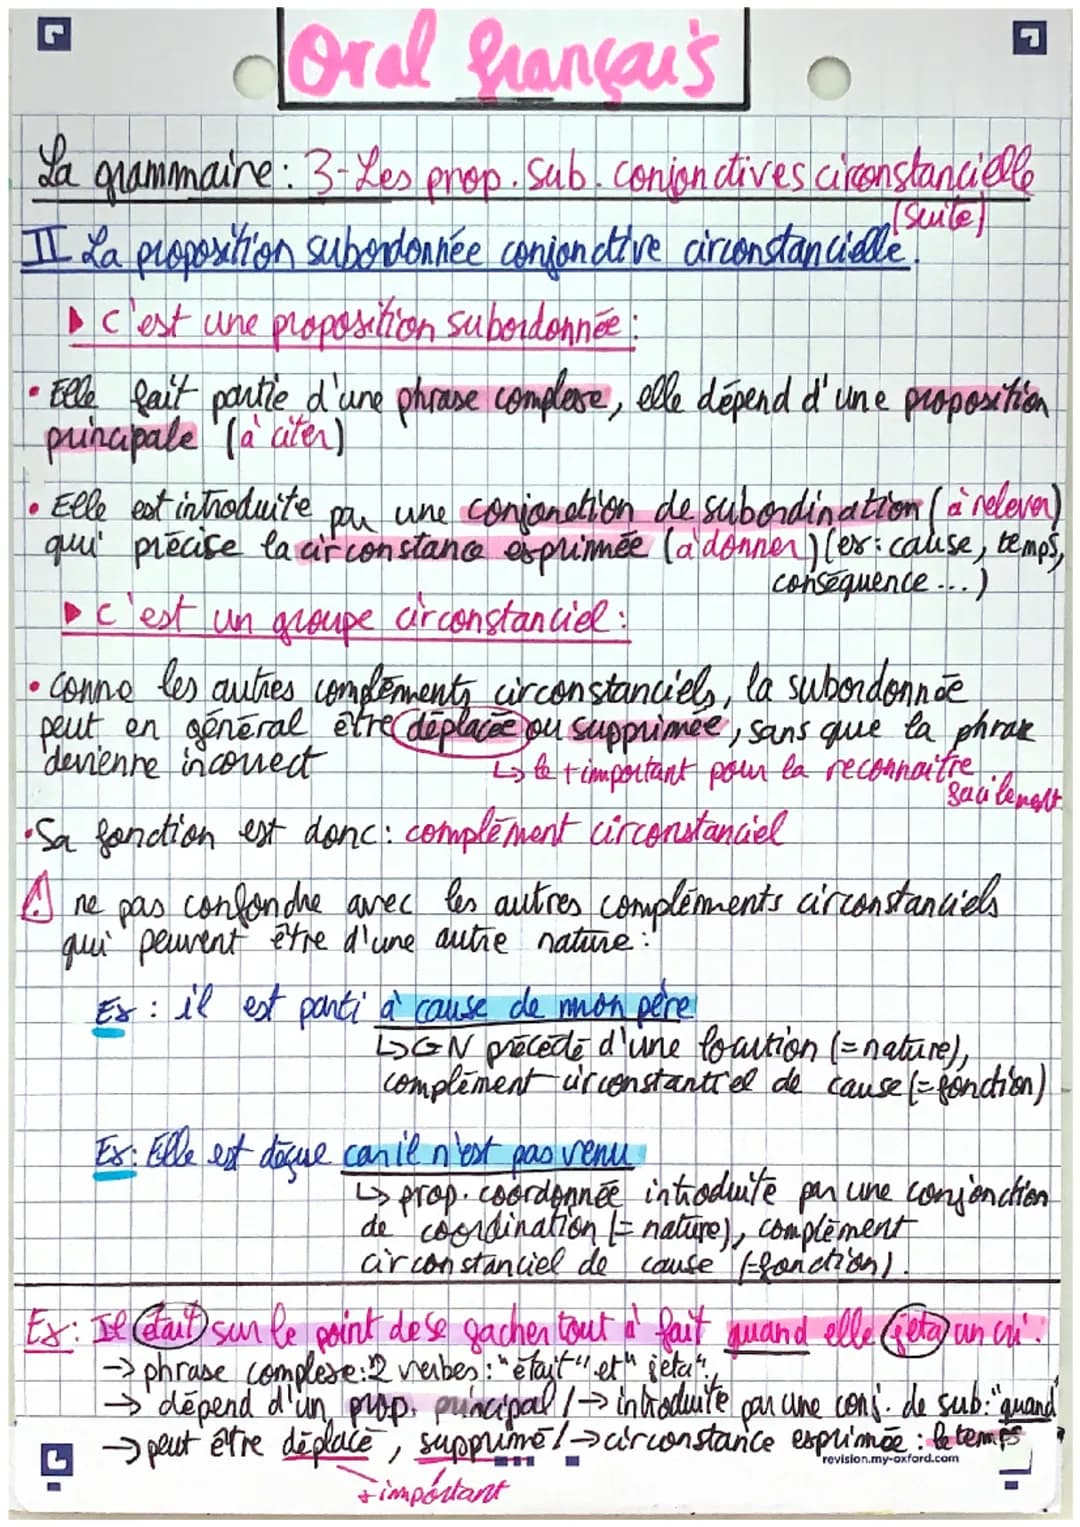 Oral français
La grammaire: 3-Les prop. sub. conjonctives circonstancielle
(suite)
II La proposition subordonnée conjonctive circonstancielle.
▶ c'est une proposition subordonnée:
• Elle fait partie d'une phrase complexe, elle dépend d'une proposition
principale (à citer)
• Elle est introduite par une conjonction de subordination (à relever)
qui précise la circonstance exprimée (à donner) (ex: cause, temps,
conséquence...)
▶ c'est un groupe circonstanciel:
• comme les autres compléments circonstanciels, la subordonnée
peut en général être déplacée ou supprimée, sans que la phrase
devienne incorrect
↳ le + important pour la reconnaître
facilement
• Sa fonction est donc: complément circonstanciel
⚠ ne pas confondre avec les autres compléments circonstanciels
qui peuvent être d'une autre nature:
Ex: il est parti à cause de mon père
↳ GN précédé d'une locution (=nature),
complément circonstantiel de cause (=fonction)
Ex: Elle est déçue car il n'est pas venu
↳ prop. coordonnée introduite par une conjonction
de coordination (= nature), complément
circonstanciel de cause (=fonction).
Ex: Il était sur le point de se gacher tout à fait quand elle jeta un cri.
→ phrase complexe: 2 verbes: "était" et "jeta".
→ dépend d'un prop. principal / → introduite par une conj. de sub: "quand"
→ peut être déplacé, supprimé / → circonstance exprimée: le temps
revision.my-oxford.com
+ important